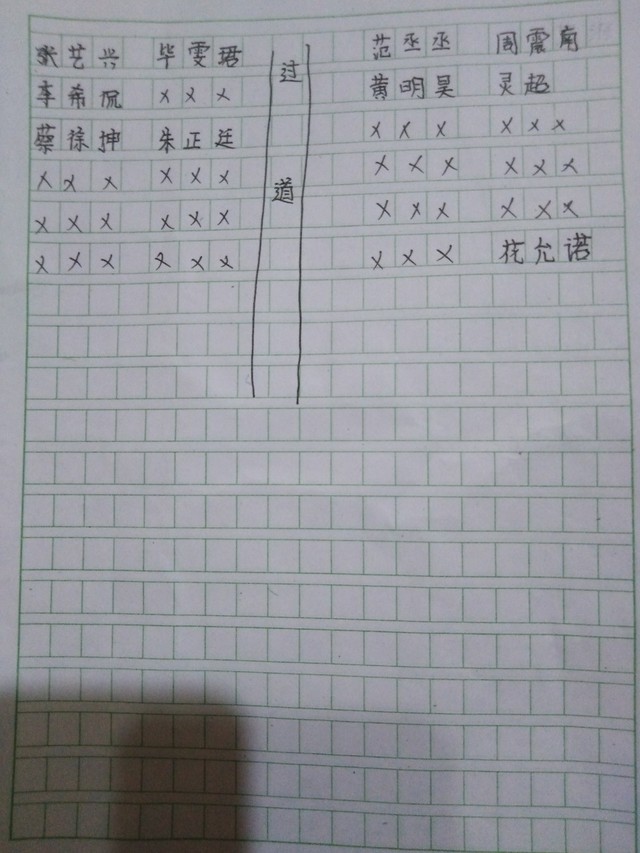 张艺兴 毕雯珺 过 范丞丞 周震南
李希侃 ××× 黄明昊 灵超
蔡徐坤 朱正廷 ××× ×××
××× ××× 道 ××× ×××
××× ××× ××× ×××
××× ××× ××× 花允诺